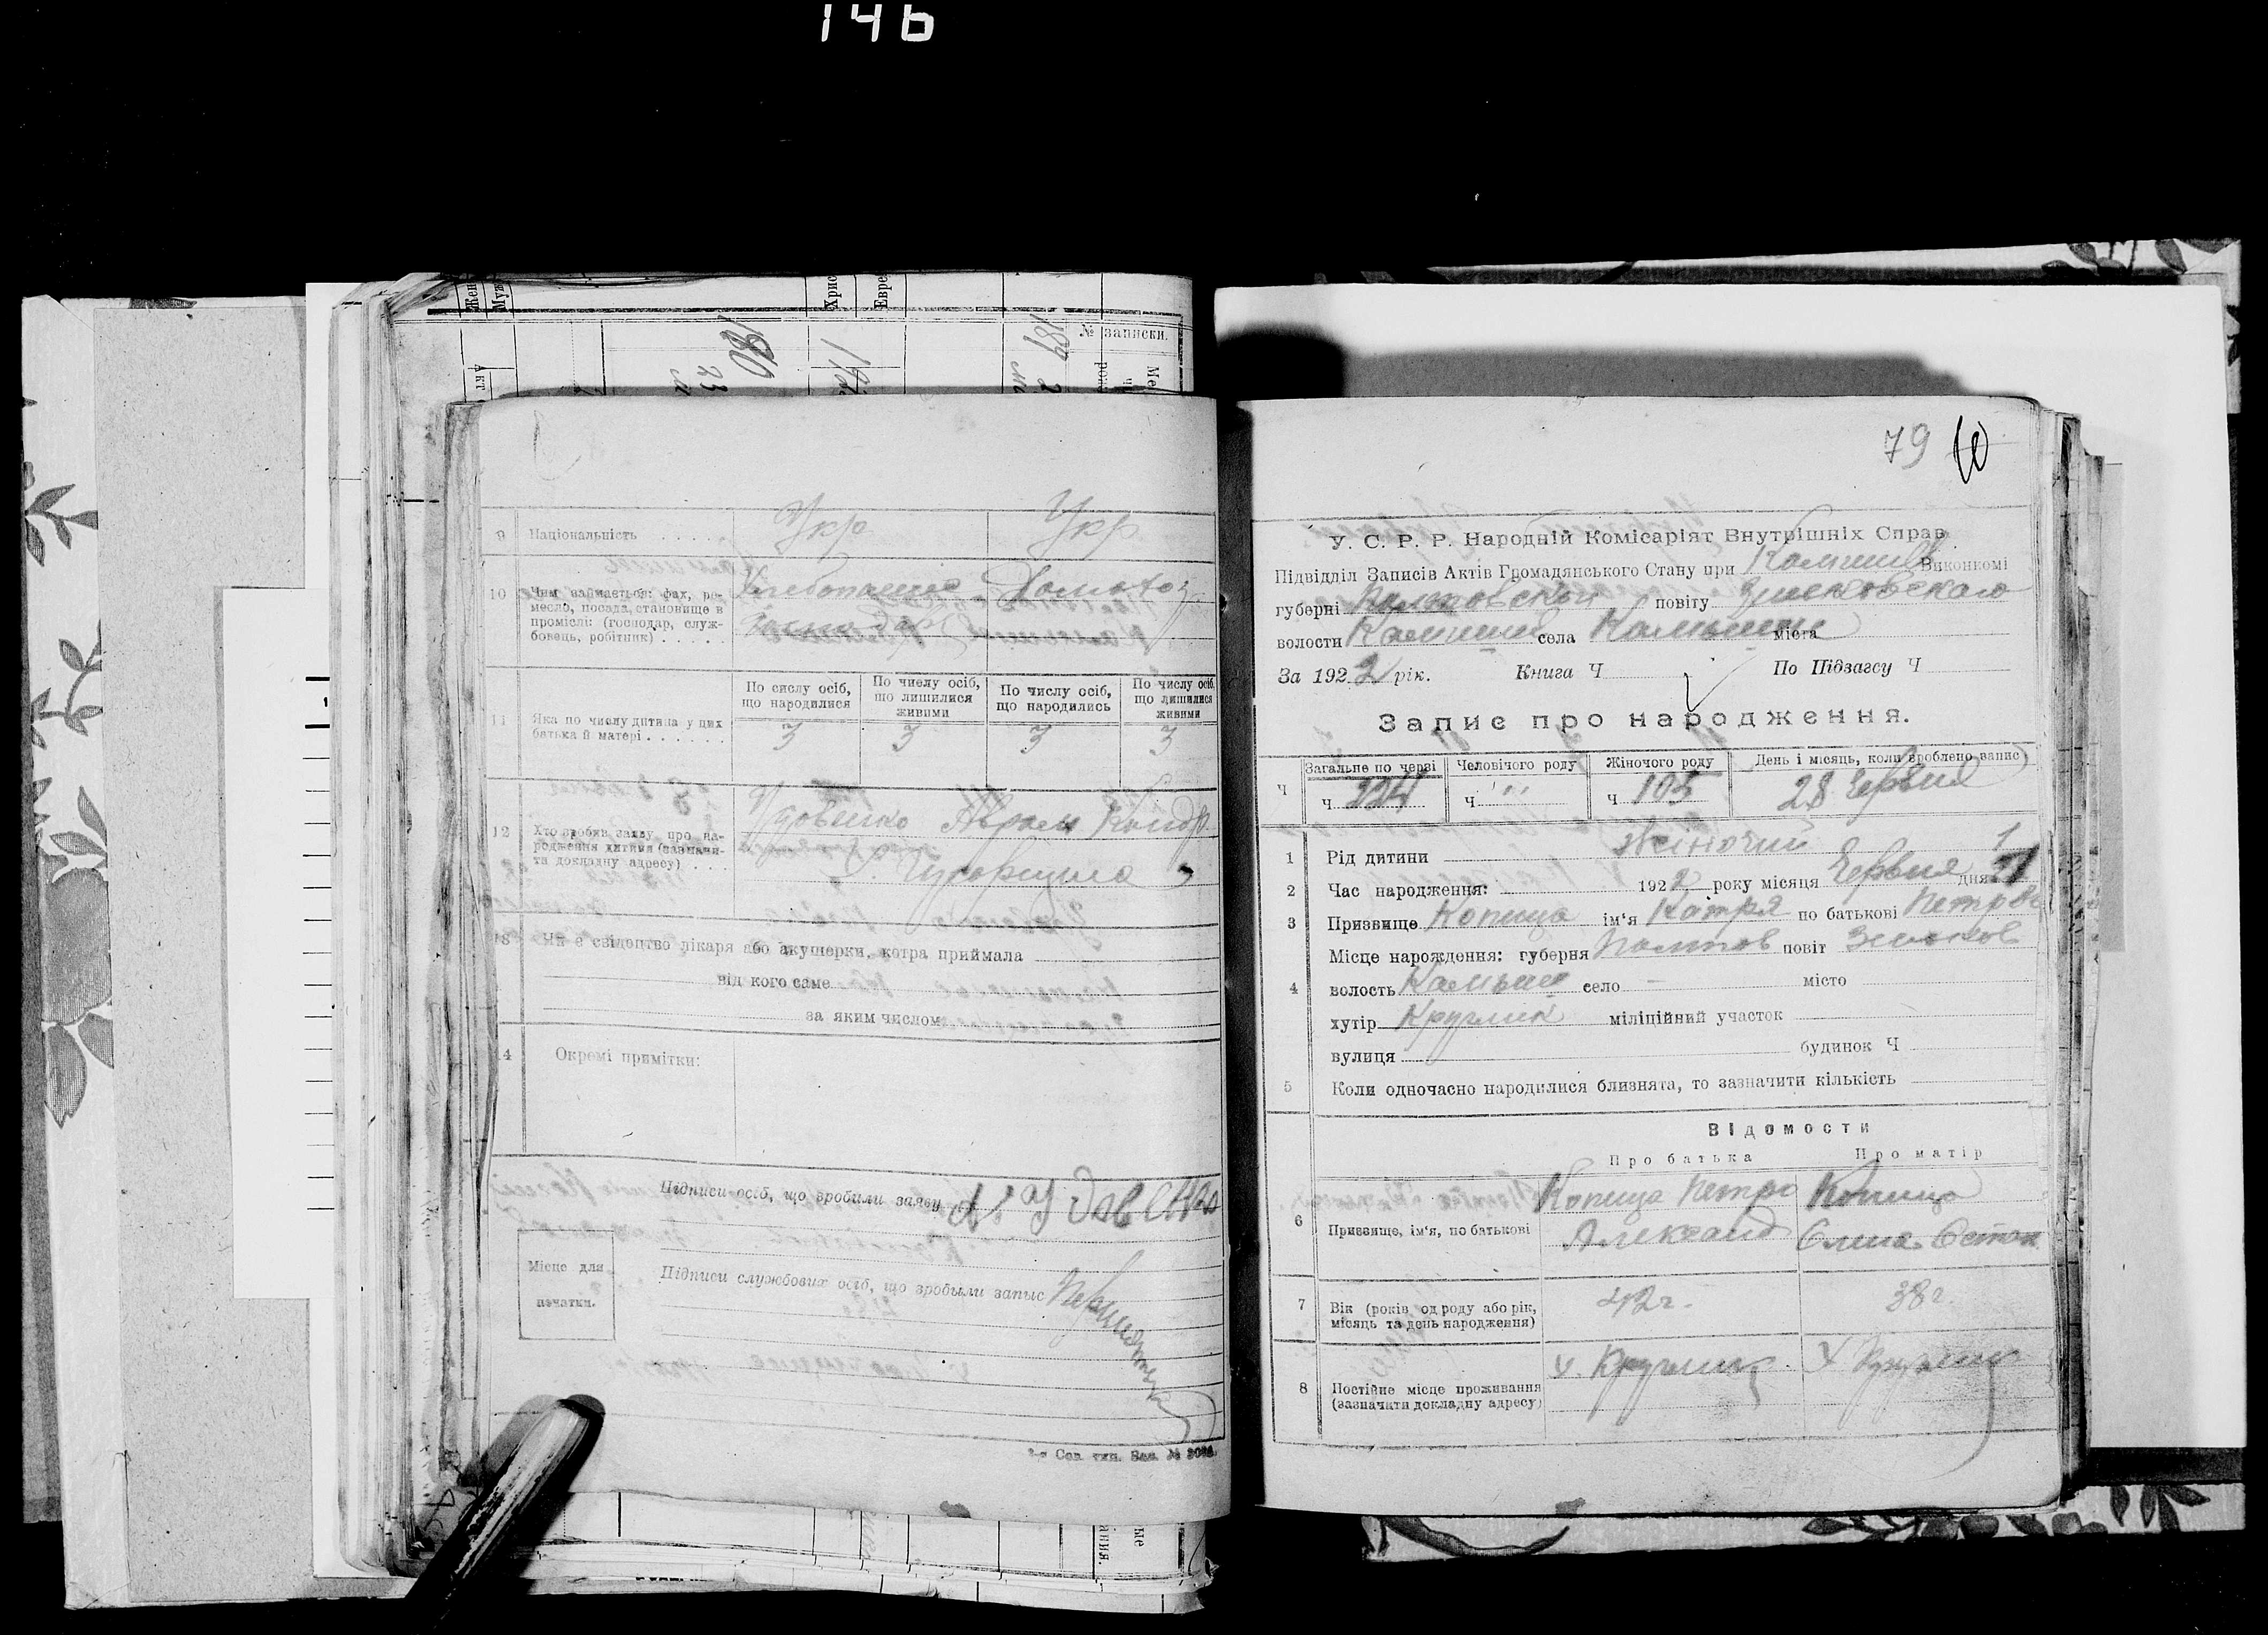 146
Жен
Муж
Хрис
Евре
№ записки.
189
190
23
Акт
9 Національність . . . . . Укр Укр
10 Чим займається: фах, ре-
месло, посада, становище в
проміслі: (господар, служ-
бовець, робітник) . . . .
Хлебопашес Домохоз
господар
11 Яка по числу дитина у цих
батька й матері . . . . . .
По сислу осіб, що народилися
По числу осіб, що лишилися живими
По числу осіб, що народились
По числу осіб, що лишилися живими
3 3 3 3
12 Хто зробив заяву про на-
родження дитини (зазначи-
ти докладну адресу) . . .
Удовенко Абрам Кондр
13 Чи є свідоцтво лікаря або акушерки, котра приймала
від кого саме
за яким числом
14 Окремі примітки:
Підписи осіб, що зробили заяву
Місце для
печатки.
Підписи службових осіб, що зробыли запыс
79
У. С. Р. Р. Народній Комісаріят Внутрішніх Справ.
Підвідділ Записів Актів Громадянського Стану при Камишов Виконкомі
губерні Полтовской повіту Зиньковскаго
волости Камиши села Камыши міста
За 1922 рік. Книга Ч По Підзагсу Ч
Запис про народження.
Ч
Загальне по черзі Человічого роду Жіночого роду День і місяць, коли зроблено запис
Ч 224 Ч " Ч 105 28 Червня
1 Рід дитини жіночий
2 Час народження: 1922 року місяця Червня дня 21
3 Призвище Копица ім'я Катря по батькові Петров
4 Місце нарождення: губерня Полтов повіт Зиньков
волость Камыш село - місто
хутір Круглик міліційний участок
вулиця будинок Ч
5 Коли одночасно народилися близнята, то зазначити кількість
Відомости
Про батька Про матір
6 Призвище, ім'я, по батькові
Копица Петро Копица
Александ Олена Остап
7 Вік (років од роду або рік,
місяць та день народження)
42г. 38г.
8 Постійне місце проживання
(зазначити докладну адресу)
х. Круглик х Круглик